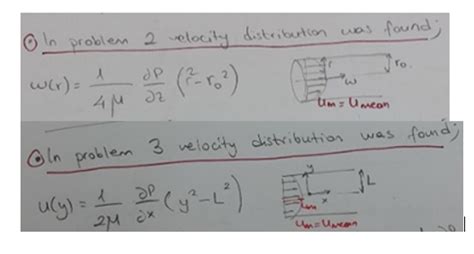 ⊙ In problem 2 velocity distribution was found;
w(r) = 1/4μ ∂P/∂z (r² - r₀²)
r
r₀
w
um = umean
⊙ In problem 3 velocity distribution was found;
u(y) = 1/2μ ∂P/∂x (y² - L²)
y
L
x
um
um = umean